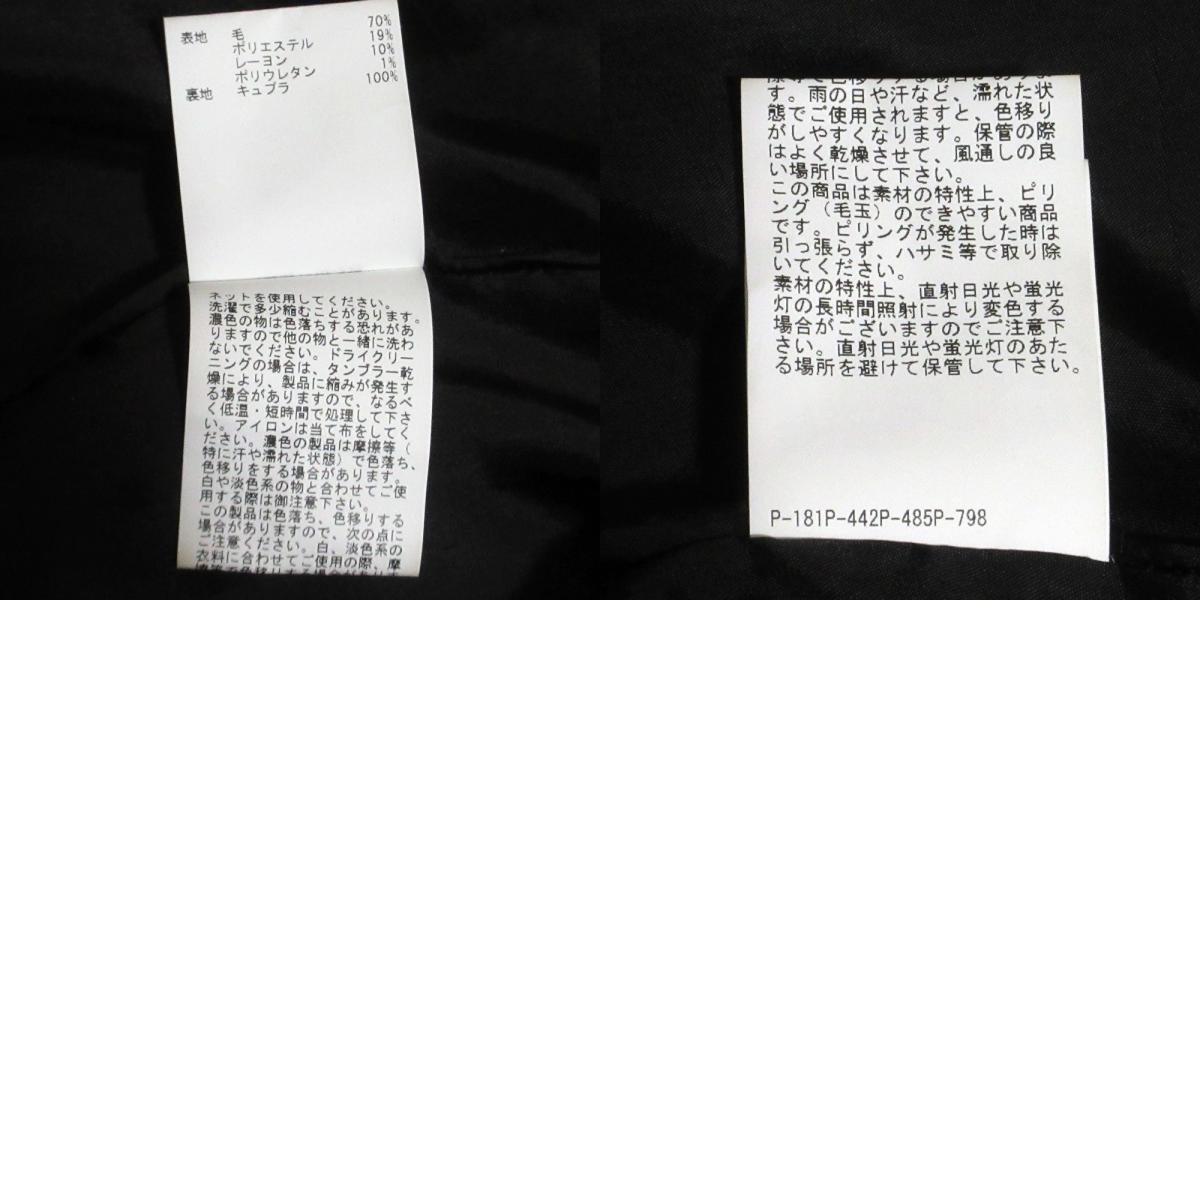 表地 毛 70%
ポリエステル 19%
レーヨン 10%
ポリウレタン 1%
裏地 キュプラ 100%
ネットを使用してください。
洗濯で多少縮むことがあります。
濃色の物は色落ちする恐れがあ
りますので他の物と一緒に洗わ
ないでください。ドライクリー
ニングの場合は、タンブラー乾
燥により、製品に縮みが発生す
る場合がありますので、なるべ
く低温・短時間で処理して下さ
い。アイロンは当て布をしてく
ださい。濃色の製品は摩擦等（
特に汗や濡れた状態）で色落ち、
色移りをする場合があります。
白や淡色系の物と合わせてご使
用する際は御注意下さい。
この製品は色落ち、色移りする
場合がありますので、次の点に
ご注意ください。白、淡色系の
衣料に合わせてご使用の際、摩
擦等で色移りする場合がありま
擦等で色移りする場合がありま
す。雨の日や汗など、濡れた状
態でご使用されますと、色移り
がしやすくなります。保管の際
はよく乾燥させて、風通しの良
い場所にして下さい。
この商品は素材の特性上、ピリ
ング（毛玉）のできやすい商品
です。ピリングが発生した時は
引っ張らず、ハサミ等で取り除
いてください。
素材の特性上、直射日光や蛍光
灯の長時間照射により変色する
場合がございますのでご注意下
さい。直射日光や蛍光灯のあた
る場所を避けて保管して下さい。
P-181P-442P-485P-798